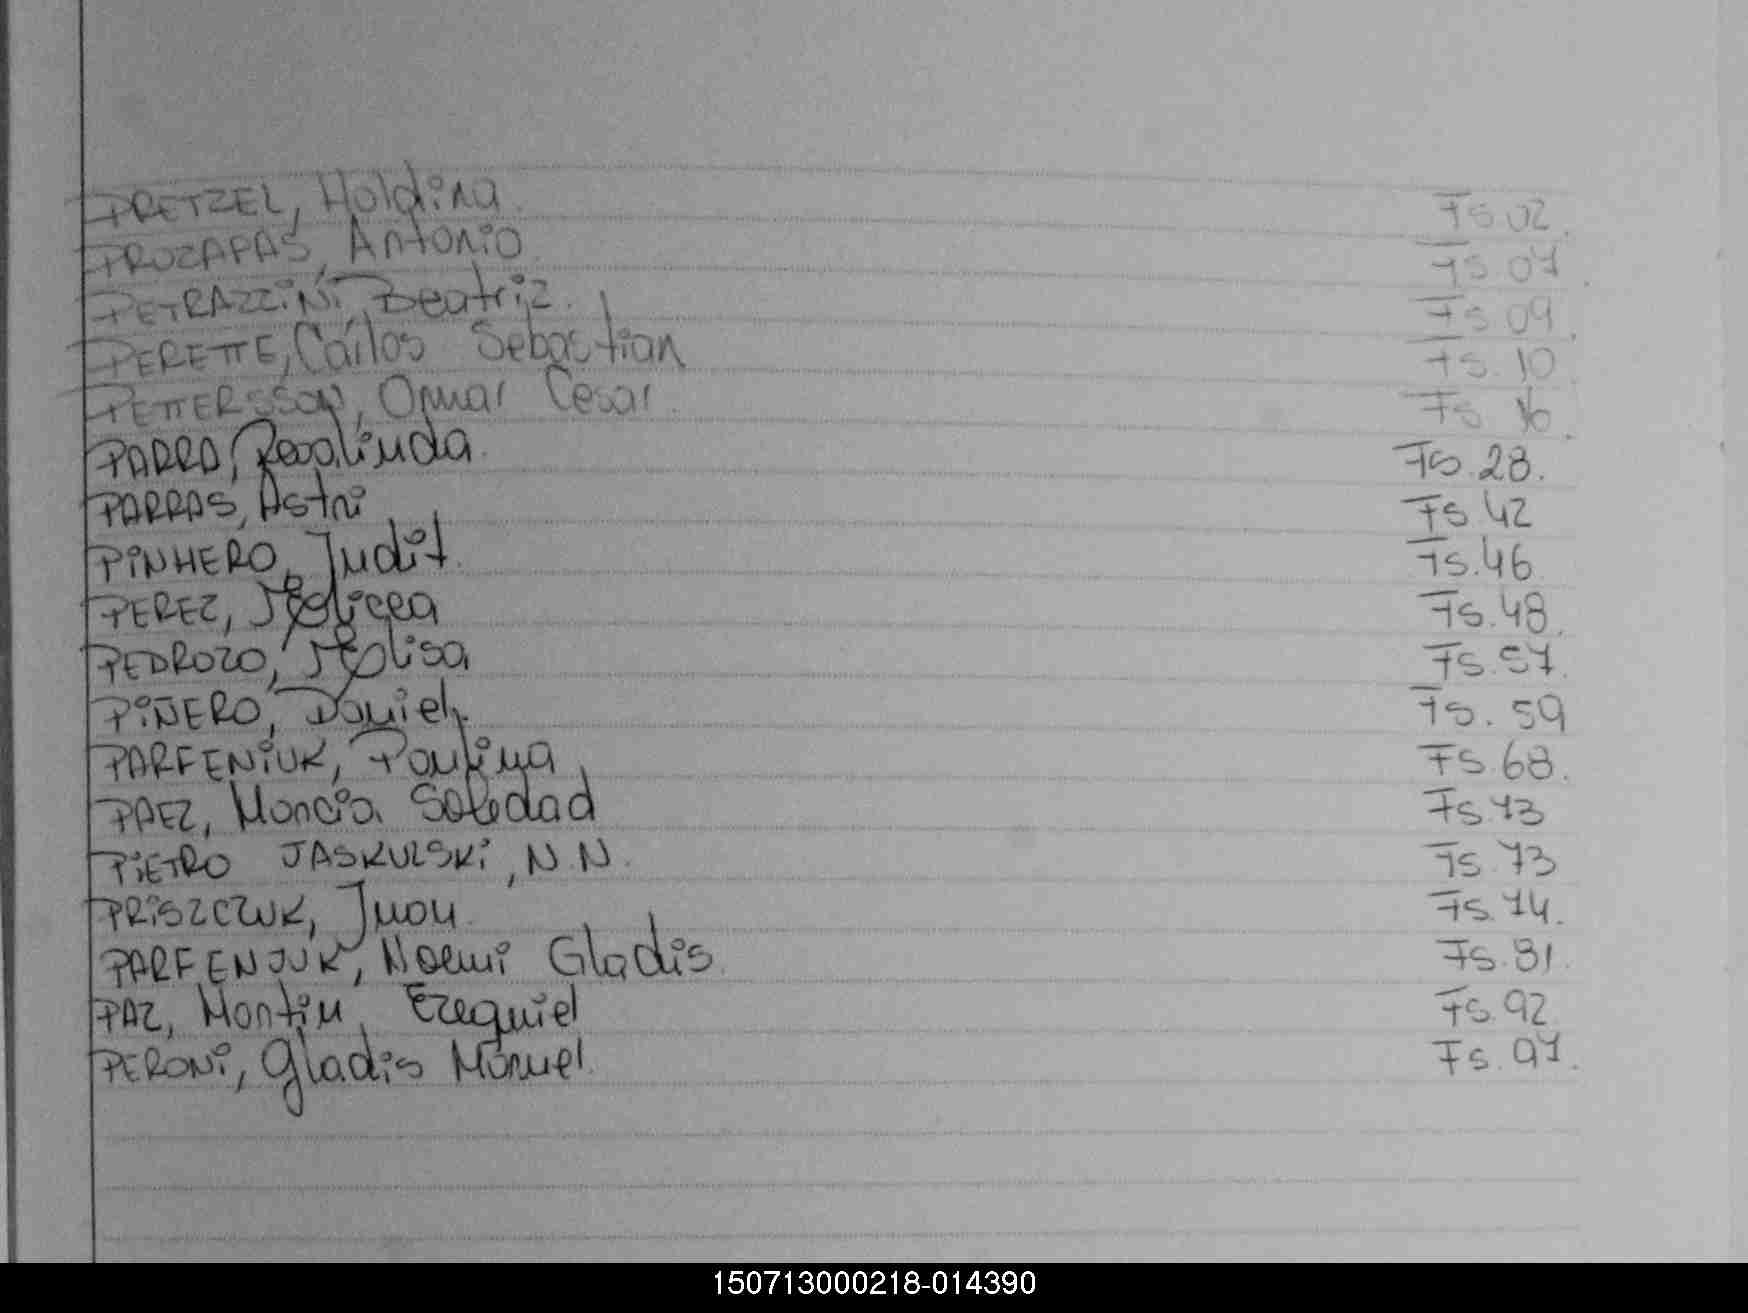 PRETZEL, Holdina. Fs.02.
PROZAPAS, Antonio Fs.07.
PETRAZZiNi, Beatriz. Fs.09.
PERETTE, Carlos Sebastian Fs.10.
PETTERSSON, Omar Cesar. Fs 16.
PARRA, Rosalinda. Fs.28.
PARRAS, Astri Fs.42
PiNHERO, Judit. Fs.46
PEREZ, Fs.48.
PEDROZO, Fs.57.
PiÑERO, Daniel. Fs.59
PARFENiUK, Paulina. Fs.68.
PAEZ, Marcia Soledad Fs.73
PiETRO JASKULSKi, N.N. Fs.73
PRiSZCZUK, Juan. Fs.74.
PARFENJUK, Noemi Gladis. Fs.81.
PAZ, Martin Ezequiel Fs.92
PERONi, Gladis Manuel. Fs.97.
150713000218-014390